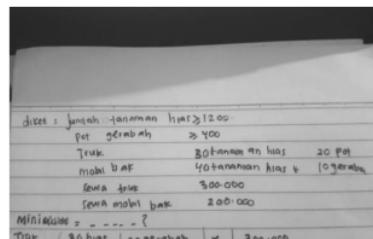 diket : jumlah tanaman hias ≥ 1200
pot gerabah ≥ 400
Truk 30 tanaman hias 20 pot
mobil bak 40 tanaman hias + 10 gerabah
sewa truk 300.000
sewa mobil bak 200.000
= - - - - - ?
Truk 30 hias 300.000